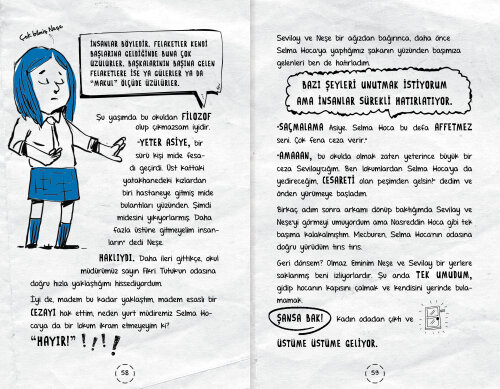 Çok bilmiş Neşe
İNSANLAR BÖYLEDİR. FELAKETLER KENDİ
BAŞLARINA GELDİĞİNDE BUNA ÇOK
ÜZÜLÜRLER. BAŞKALARININ BAŞINA GELEN
FELAKETLERE İSE YA GÜLERLER YA DA
“MAKUL” ÖLÇÜDE ÜZÜLÜRLER.
Şu yaşımda bu okuldan FİLOZOF
olup çıkmazsam iyidir.
-YETER ASİYE, bir
sürü kişi mide fesa-
dı geçirdi. Üst kattaki
yatakhanedeki kızlardan
biri hastaneye gitmiş mide
bulantıları yüzünden. Şimdi
midesini yıkıyorlarmış. Daha
fazla üstüne gitmeyelim insan-
ların” dedi Neşe.
HAKLIYDI. Daha ileri gittikçe, okul
müdürümüz sayın Fikri Tutuk'un odasına
doğru hızla yaklaştığımı hissediyordum.
İyi de, madem bu kadar yaklaştım, madem esaslı bir
CEZAYI hak ettim, neden yurt müdiremiz Selma Ho-
caya da bir lokum ikram etmeyeyim ki?
“HAYIR!” !!!!
58
Sevilay ve Neşe bir ağızdan bağırınca, daha önce
Selma Hocaya yaptığımız şakanın yüzünden başımıza
gelenleri ben de hatırladım.
BAZI ŞEYLERİ UNUTMAK İSTİYORUM
AMA İNSANLAR SÜREKLİ HATIRLATIYOR.
-SAÇMALAMA Asiye. Selma Hoca bu defa AFFETMEZ
seni. Çok fena ceza verir.”
-AMAAAN, bu okulda olmak zaten yeterince büyük bir
ceza Sevilaycığım. Ben lokumlardan Selma Hocaya da
yedireceğim, CESARETİ olan peşimden gelsin” dedim ve
önden yürümeye başladım.
Birkaç adım sonra arkamı dönüp baktığımda Sevilay ve
Neşeyi görmeyi umuyordum ama Nasreddin Hoca gibi tek
başıma kalakalmıştım. Mecburen, Selma Hocanın odasına
doğru yürüdüm tırıs tırıs.
Geri dönsem? Olmaz. Eminim Neşe ve Sevilay bir yerlere
saklanmış beni izliyorlardır. Şu anda TEK UMUDUM,
gidip hocanın kapısını çalmak ve kendisini yerinde bula-
mamak.
ŞANSA BAK! Kadın odadan çıktı ve
ÜSTÜME ÜSTÜME GELİYOR.
59